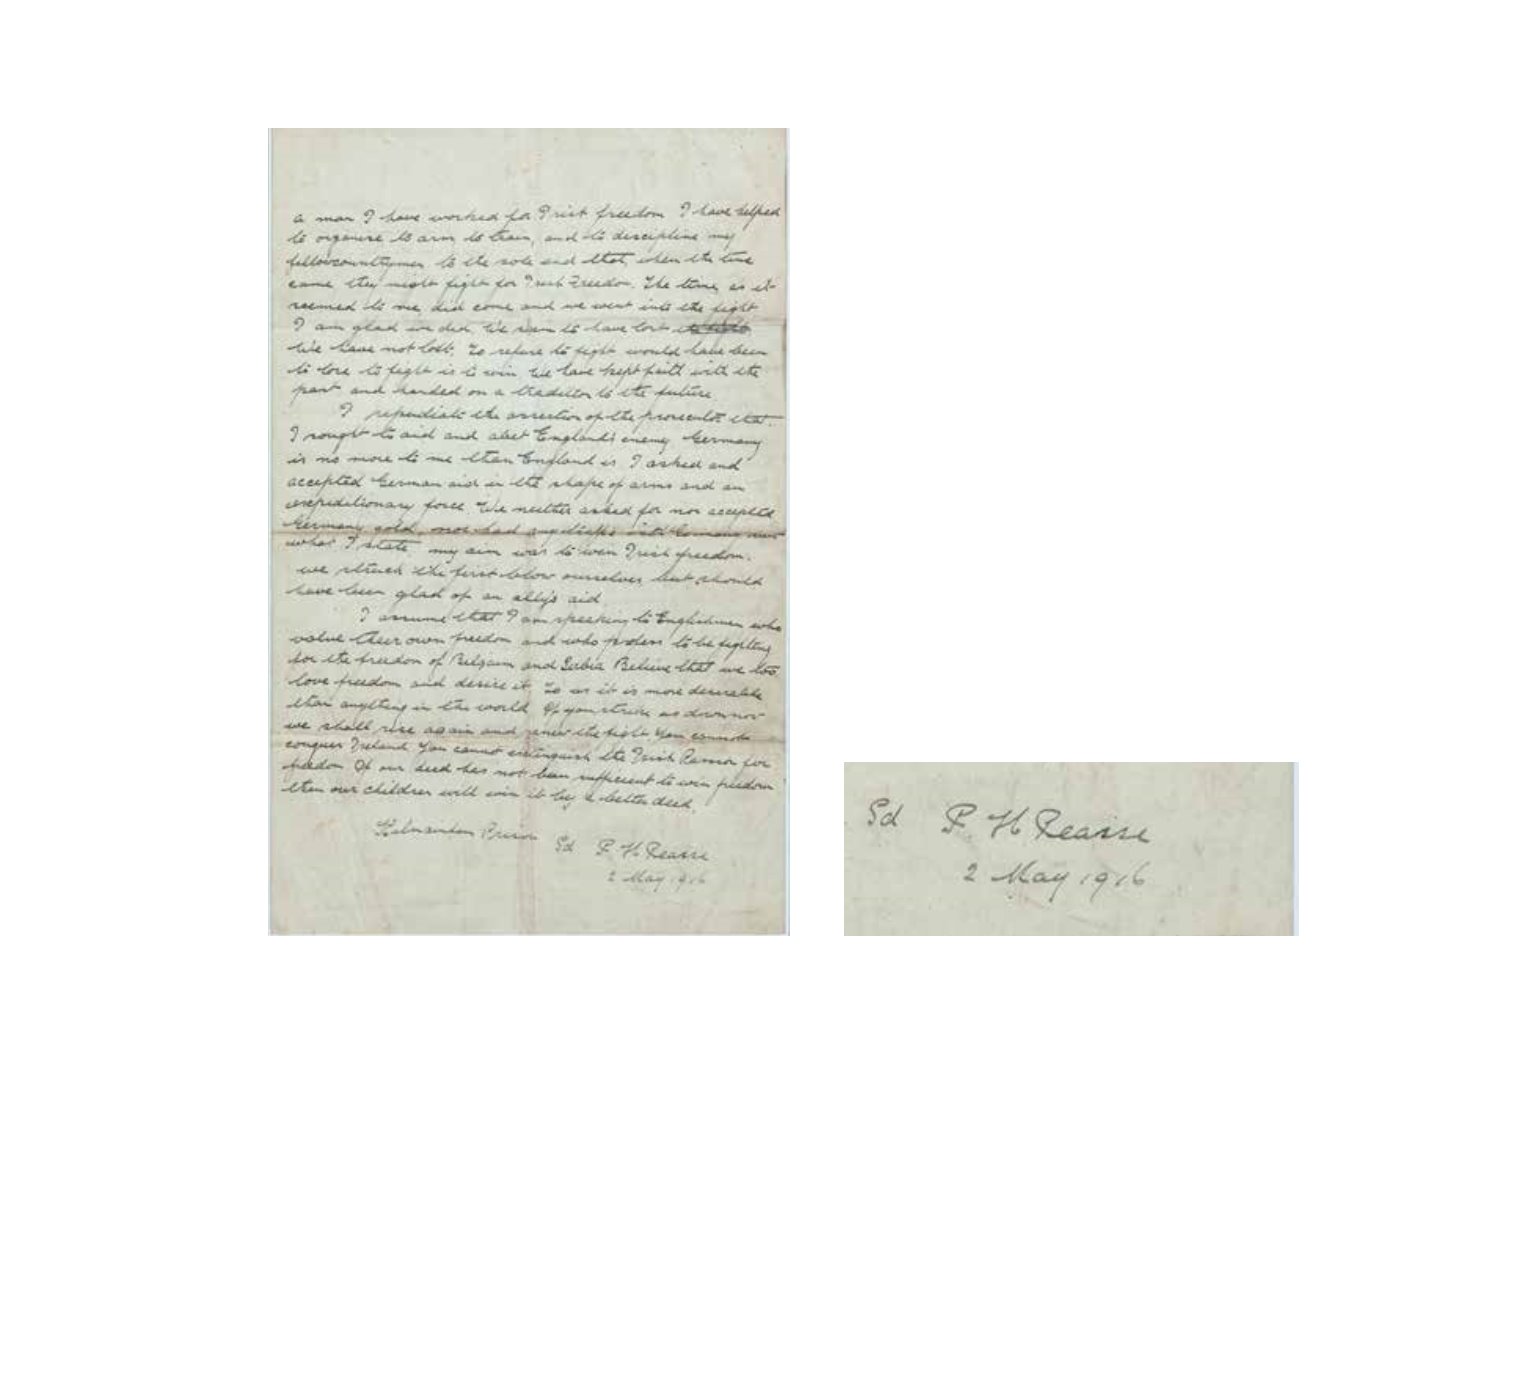 a man I have worked for Irish freedom I have helped
to organise to arm, to train, and to discipline my
fellowcountrymen to the sole end that, when the time
came they might fight for Irish Freedom. The time, as it
seemed to me, did come and we went into the fight
I am glad we did. We seem to have lost
We have not lost. To refuse to fight would have been
to lose to fight is to win. We have kept faith with the
past and handed on a tradition to the future.
I repudiate the assertion of the prosecutor that
I sought to aid and abet England's enemy Germany
is no more to me than England is I asked and
accepted German aid in the shape of arms and an
expeditionary force We neither asked for nor accepted
Germany gold, nor had any traffic with Germany
what I state my aim was to win Irish freedom.
we struck the first blow ourselves but should
have been glad of an ally's aid
I assume that I am speaking to Englishmen who
value their own freedom and who profess to be fighting
for the freedom of Belgium and Serbia Believe that we too
love freedom and desire it To us it is more desirable
than anything in the world If you strike us down now
we shall rise again and renew the fight You cannot
conquer Ireland You cannot extinguish the Irish Passion for
freedom If our deed has not been sufficient to win freedom
then our children will win it by a better deed.
Kilmainham Prison
Sd P. H Pearse
2 May 1916
Sd P. H Pearse
2 May 1916